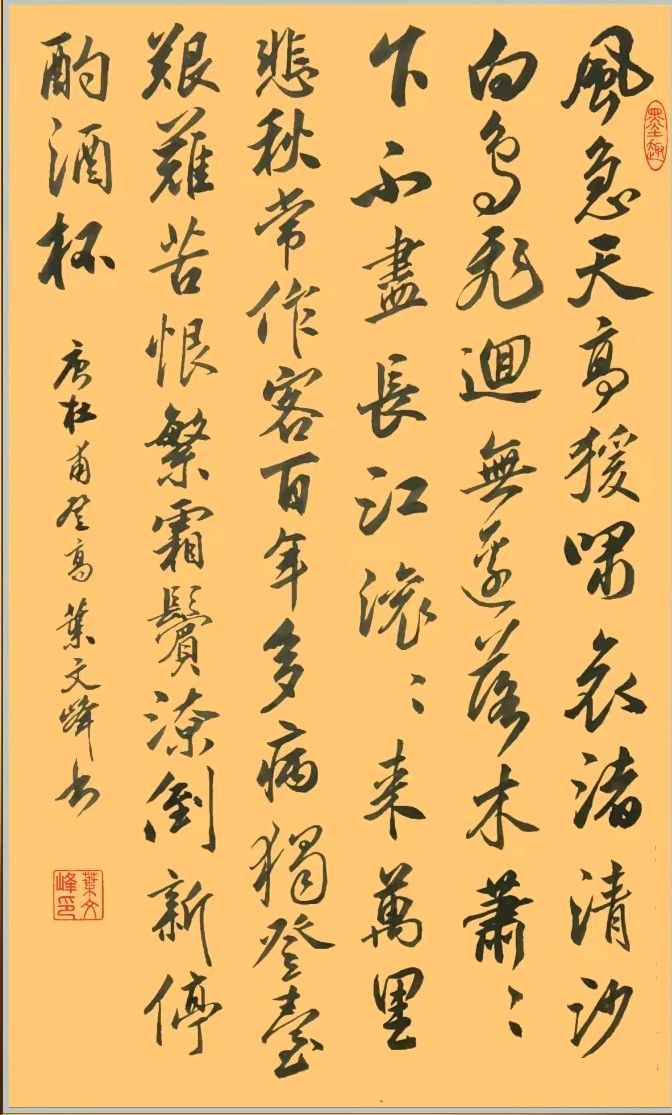 墨趣
風急天高猨嘯哀渚清沙
白鳥飛迴無邊落木蕭〻
下不盡長江滾〻来萬里
悲秋常作客百年多病獨登臺
艱難苦恨繁霜鬢潦倒新停
酌酒杯
唐杜甫登高葉文峰书
葉文峰印